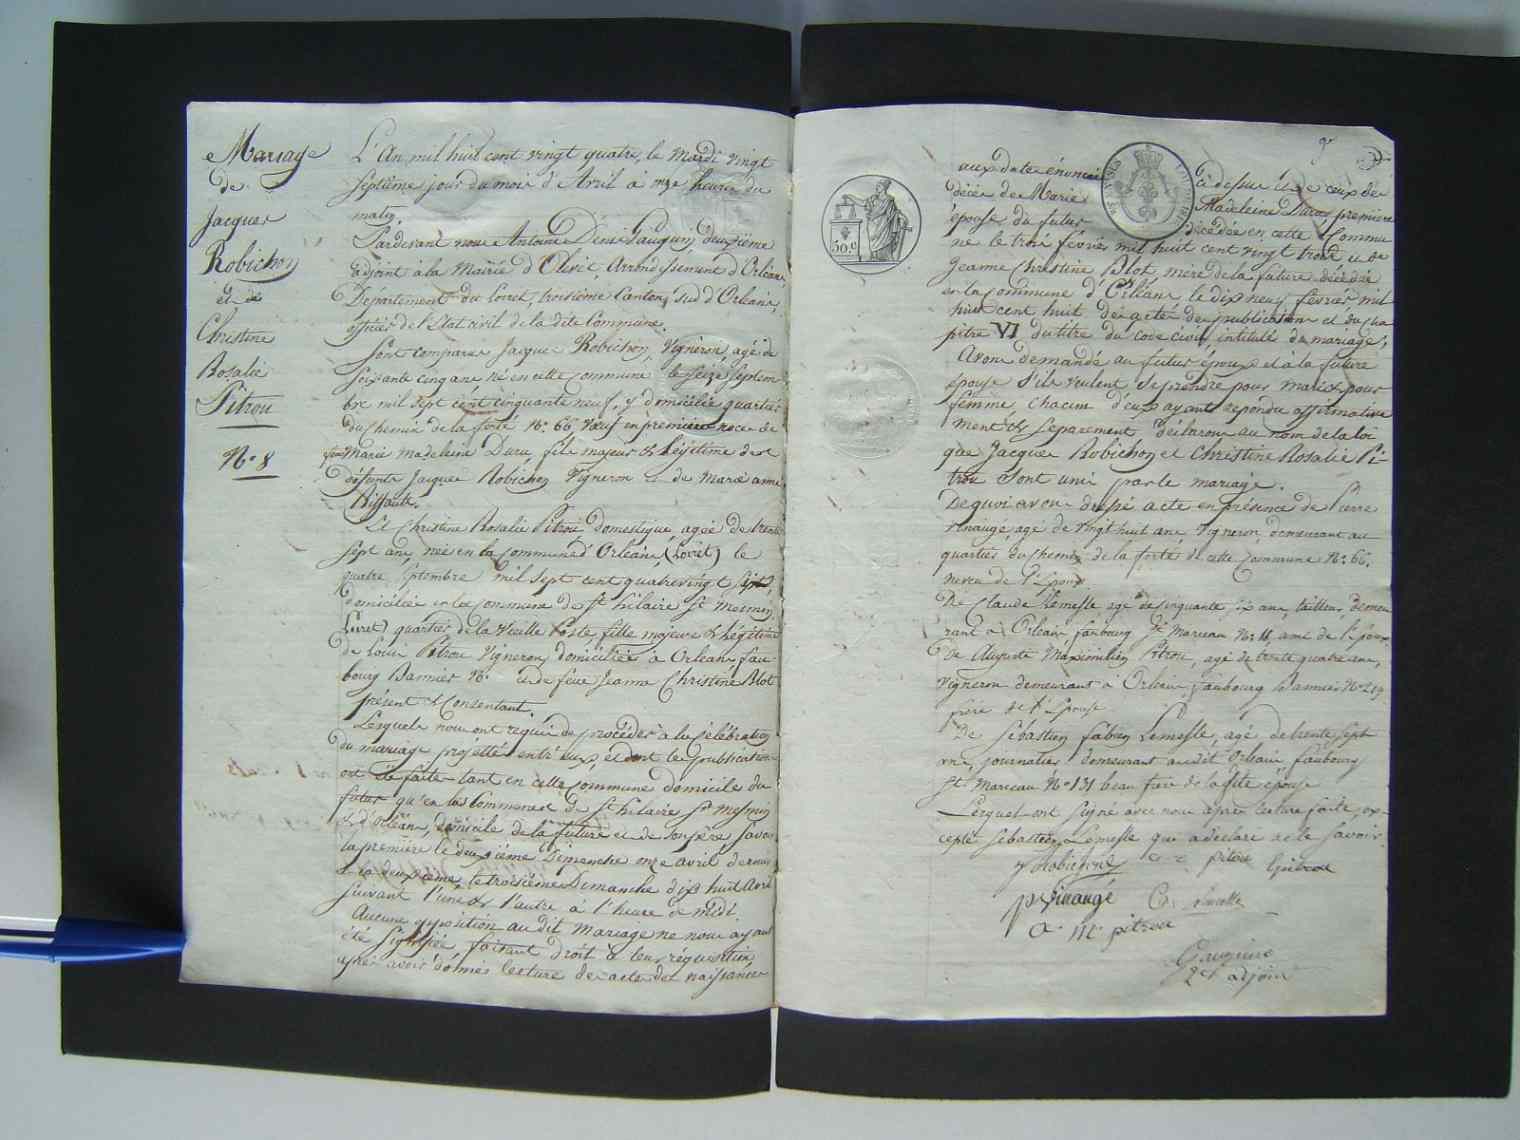 Mariage
de
Jacques
Robichon
et de
Christine
Rosalie
Pitrou
N° 8
L'An mil huit cent vingt quatre, le Mardi vingt
septième jour du mois d'Avril à onze heures du
matin.
Pardevant nous Antoine Denis Gaugum, deuxième
adjoint à la Mairie d'Olivet, Arrondissement d'Orléans,
Département du Loiret, troisième Canton, sud d'Orléans,
officier de l'Etat civil de la dite Commune.
Sont comparus Jacques Robichon, Vigneron, agé de
soixante cinq ans né en cette commune le seize septem
bre mil sept cent cinquante neuf, y domicilié quartier
du chemin de la ferté N° 66 Veuf en première noce de
feue Marie Madeleine Duru fils majeur & légitime des
défunts Jacques Robichon Vigneron & de Marie anne
Riffault.
Et Christine Rosalie Pitrou, domestique, agée de trente
sept ans, née en la commune d'Orléans (Loiret) le
quatre septembre mil sept cent quatrevingt sept,
domiciliée en la commune de St hilaire St Mesmin
(Loiret) quartier de la Vieille Poste, fille majeure & légitime
de Louis Pitrou Vigneron, domicilié à Orléans fau
bourg Bannier N° et de feue Jeanne Christine Blot
présent & Consentant.
Lesquels nous ont requis de procéder à la célébration
du mariage projetté entr'eux, et dont les publications
ont été faites tant en cette commune domicile du
futur qu'en les Communes de St hilaire St Mesmin
& d'Orléans, domicile de la future et de son père savoir
la première le deuxième Dimanche onze avril dernier
& la deuxième le troisième Dimanche dix huit Avril
suivant l'une & l'autre à l'heure de midi
Aucune opposition au dit Mariage ne nous ayant
été signifiée faisant droit à leur réquisition,
après avoir donné lecture des actes de naissances
aux dates énoncées ci dessus & de ceux des
décès de Marie Madeleine Duru, première
épouse du futur décédée en cette Commu
ne le trois février mil huit cent vingt trois & de
Jeanne Christine Blot, mère de la future décédée
en la Commune d'Orléans le dix neuf février mil
huit cent huit des actes de publications et du cha
pitre VI du titre du code civil intitulé du mariage.
Avons demandé au futur époux et à la future
épouse s'ils veulent se prendre pour mari & pour
femme, chacun d'eux ayant répondu affirmative
ment & séparément, déclarons au nom de la loi
que Jacques Robichon et Christine Rosalie Pi-
trou sont unis par le mariage.
De quoi avons dressé acte en présence de Pierre
Vinauge, agé de vingt huit ans, Vigneron demeurant au
quartier du chemin de la ferté de cette commune N° 66.
neveu de l'Epoux
De Claude Lemesle agé de cinquante six ans, tailleur, demeu
rant à Orléans faubourg St Marceau N° 11, ami de l'époux
De Auguste Maximilien Pitrou, agé de trente quatre ans,
Vigneron demeurant à Orléans faubourg Bannier N° 219
frère de l'Epouse
De Sébastien fabien Lemesle, agé de trente sept
ans, journalier demeurant au dit Orléans faubourg
St Marceau N° 131 beau frère de la dite épouse
Lesquels ont signé avec nous après lecture faite, ex-
cepté Sébastien Lemesle qui a déclaré ne le savoir
J Robichon C R pitrou
p vinaugé C. Lemesle
A. M. pitrou
2e adjoint
50 c